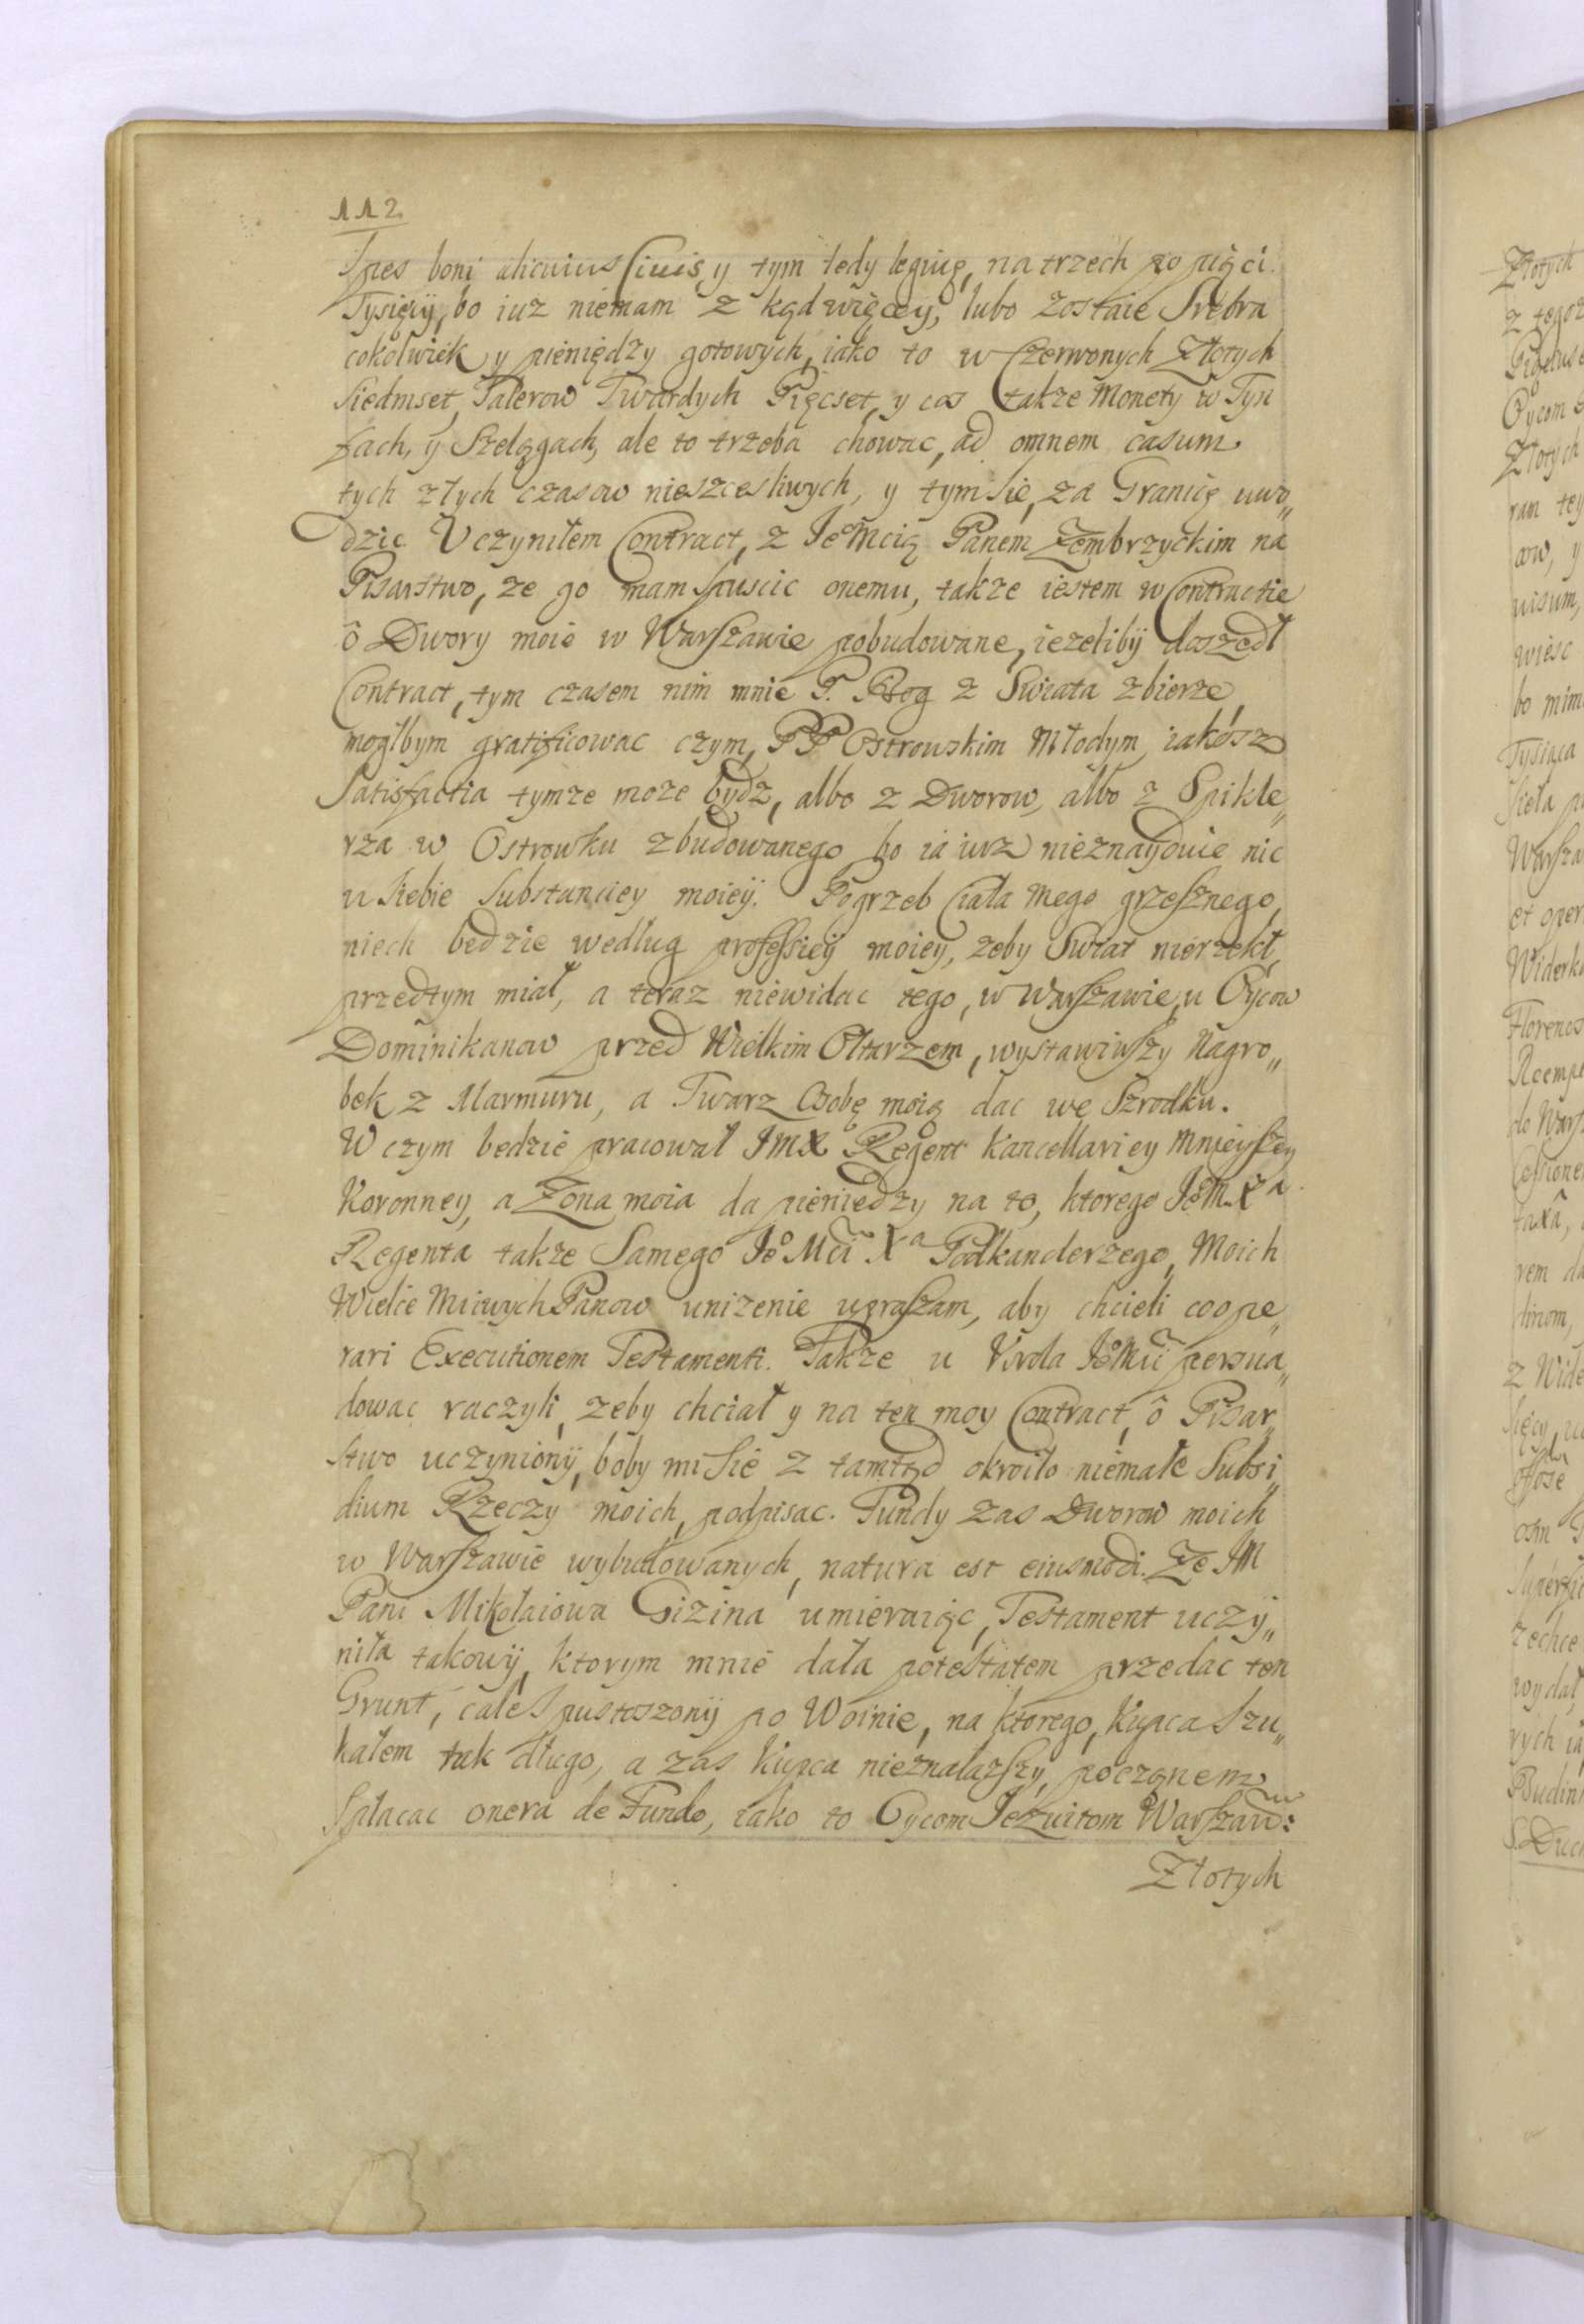 112.
Spes boni alicuius Ciuis, y tym tedy leguię, na trzech po pięci
Tysięcy, bo iuz niemam z kąd więcey, lubo zostaie Srebra
cokolwiek y pieniędzy gotowych, iako to w Czerwonych Złotych
Siedmset, Talerow Twardych Pięcset, y cos także Monety w Tyn
fach, y Szelągach, ale to trzeba chowac, ad omnem casum
tych złych czasow nieszcesliwych, y tym się, za Granicę uwo„
dzic Uczyniłem Contract, z Jeo Mcią Panem Zembrzyckim na
Pisarstwo, ze go mam spuscic onemu, takze iestem w Contractie
ô Dwory moie w Warszawie pobudowane, iezelibÿ doszedł
Contract, tym czasem nim mnie P. Bog z Swiata zbierze,
mogłbym gratificowac czym, PP Ostrowskim Młodym, iakósz
Satisfactia tymze moze bydz, albo z Dworow, albo z Spikle„
rza w Ostrowku zbudowanego, bo ia iuz nieznaÿduię nic
u siebie Substanciey moieÿ. Pogrzeb Ciała mego grzesznego,
niech bedzie według professieÿ moiey, zeby Swiat nierzekł,
przedtym miał, a teraz niewidac tego, w Warszawie, u Oycow
Dominikanow przed Wielkim Ołtarzem, wystawiwszy Nagro„
bek z Marmuru, a Twarz Osobę moią dac we Szrodku.
W czym bedzie pracował JMX Regent Kancellariey Mnieyszey
Koronney, a Zona moia da pieniedzy na to, ktorego Jeo M. Xa
Regenta takze Samego Jeo Mci Xa Podkanclerzego, Moich
Wielce Mciwych Panow unizenie upraszam, aby chcieli coope„
rari Executionem Testamenti. Takze u Krola Jeo Mci perswa„
dowac raczyli, zeby chciał y na ten moy Contract, ô Pisar„
stwo uczynionÿ, boby mi się z tamtąd okroiło niemałe Subsi„
dium Rzeczy moich, podpisac. Fundy zas Dworow moich
w Warszawie wybudowanych, natura est eiusmodi. Ze JM
Pani Mikołaiowa Gizina umieraiąc, Testament uczÿ„
niła takowÿ, ktorym mnie dała potestatem przedac ten
Grunt, cale spustoszonÿ po Woinie, na ktorego, Kupca szu„
kałem tak długo, a zas Kupca nieznalazszy, począnem
Spłacac onera de Fundo, iako to Oycom Jezuitom Warszaw:
Złotych